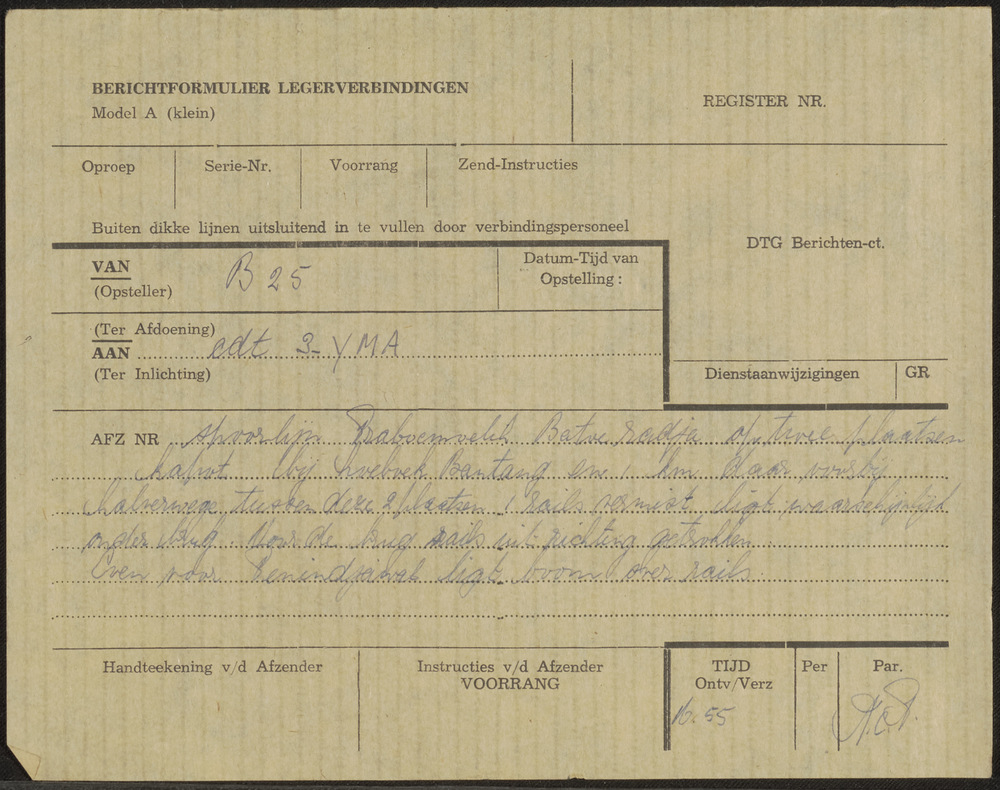 BERICHTFORMULIER LEGERVERBINDINGEN
Model A (klein)
REGISTER NR.
Oproep
Serie-Nr.
Voorrang
Zend-Instructies
Buiten dikke lijnen uitsluitend in te vullen door verbindingspersoneel
DTG Berichten-ct.
VAN
(Opsteller)
B 25
Datum-Tijd van
Opstelling :
(Ter Afdoening)
AAN cdt 3-YMA
(Ter Inlichting)
Dienstaanwijzigingen
GR
AFZ NR spoorlijn Batoe radja op twee plaatsen
kapot bij Bantang en 1 km daar voorbij
halverwege tussen deze 2 plaatsen 1 rails vermist ligt waarschijnlijk
onder brug. Voor de brug rails uit richting getrokken.
Even voor ligt boom over rails.
Handteekening v/d Afzender
Instructies v/d Afzender
VOORRANG
TIJD
Ontv/Verz
16.55
Per
Par.